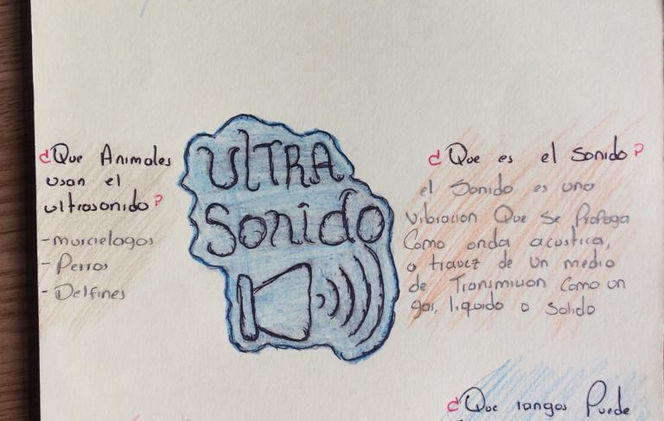 ¿Que Animales
usan el
ultrasonido?
-murcielagos
-Perros
-Delfines
UlTRA
Sonido
¿Que es el Sonido?
el Sonido es una
vibracion Que se Propaga
Como onda acustica,
a travez de un medio
de Transmision como un
gas, liquido o Solido
¿Que rangos Puede